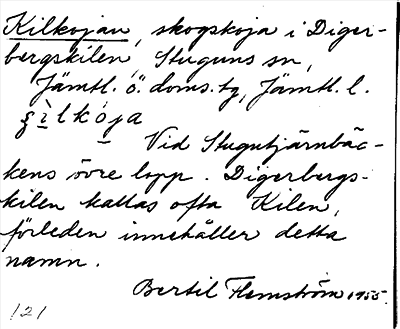 Kilkojan, skogskoja i Diger-
bergskilen, Stuguns sn,
Jämtl. ö. doms. tg, Jämtl. l.
Vid Stugutjärnbäc-
kens övre lopp. Digerbergs-
kilen kallas ofta Kilen,
förleden innehåller detta
namn.
Bertil Flemström 1955.
121